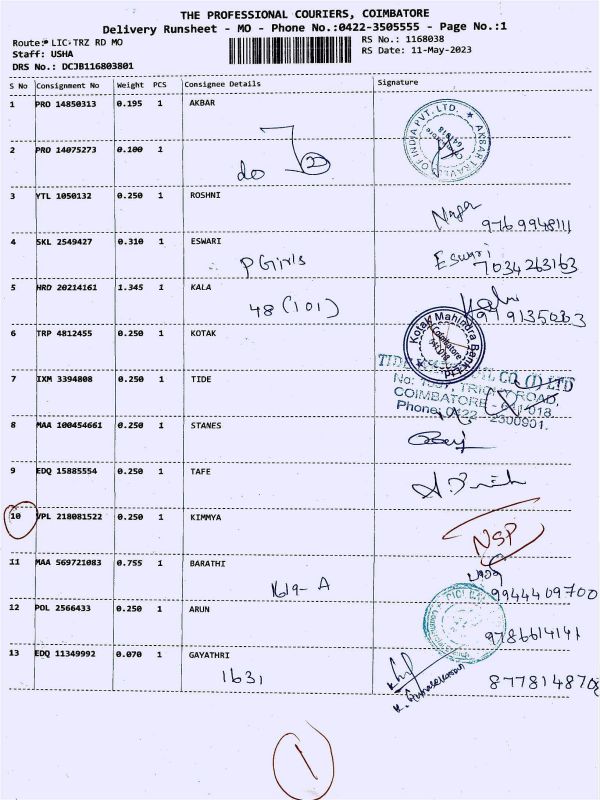 THE PROFESSIONAL COURIERS, COIMBATORE
Delivery Runsheet - MO - Phone No.:0422-3505555 - Page No.:1
Route: LIC-TRZ RD MO
RS No.: 1168038
Staff: USHA
RS Date: 11-May-2023
DRS No.: DCJB116803801
S No Consignment No Weight PCS Consignee Details Signature
1 PRO 14850313 0.195 1 AKBAR
AKBAR TRAVELS OF INDIA PVT. LTD.
2 PRO 14075273 0.100 1
do 22
3 YTL 1050132 0.250 1 ROSHNI
9769948111
4 SKL 2549427 0.310 1 ESWARI
PGirls
Eswari
7034263163
5 HRD 20214161 1.345 1 KALA
48 (101)
6 TRP 4812455 0.250 1 KOTAK
Kotak Mahindra Bank Ltd
Coimbatore
7 IXM 3394808 0.250 1 TIDE
TIDE CO. (I) LTD
No: TRICHY ROAD,
COIMBATORE - 641018.
Phone: 0422 - 2300901.
8 MAA 100454661 0.250 1 STANES
9 EDQ 15885554 0.250 1 TAFE
10 VPL 218081522 0.250 1 KIMMYA
NSP
11 MAA 569721083 0.755 1 BARATHI
1619-A
9944409700
12 POL 2566433 0.250 1 ARUN
9786614141
13 EDQ 11349992 0.070 1 GAYATHRI
1631
8778148708
1